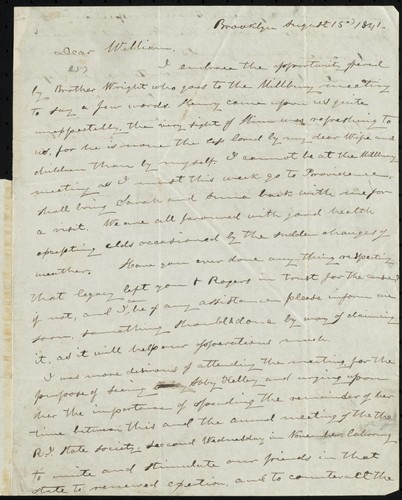 Brooklyn August 15th 1841.
Dear William,
I embrace the opportunity offered
by Brother Wright who goes to the Millbury meeting
to say a few words. Henry came upon us quite
unexpectedly, the very sight of him was refreshing to
us, for he is none the less loved by my dear Wife and
children than by myself. I cannot be at the Millbury
meeting as I must this week go to Providence,
shall bring Sarah and Anna back with me for
a visit. We are all favoured with good health
excepting colds occasioned by the sudden changes of
weather. Have you ever done any thing respecting
that legacy left you & Rogers in trust for the cause?
if not, and I, be of any assistance please inform me
soon, something should be done by way of claiming
it, as it will help our operations much.
I was more desirous of attending the meeting for the
purpose of seeing Abby Kelley and urging upon
her the importance of spending the remainder of her
time between this and the annual meeting of the
R.I. State society, second Wednesday in Nov. in laboring
to unite and stimulate our friends in that
state to renewed exertion, and to counteract the